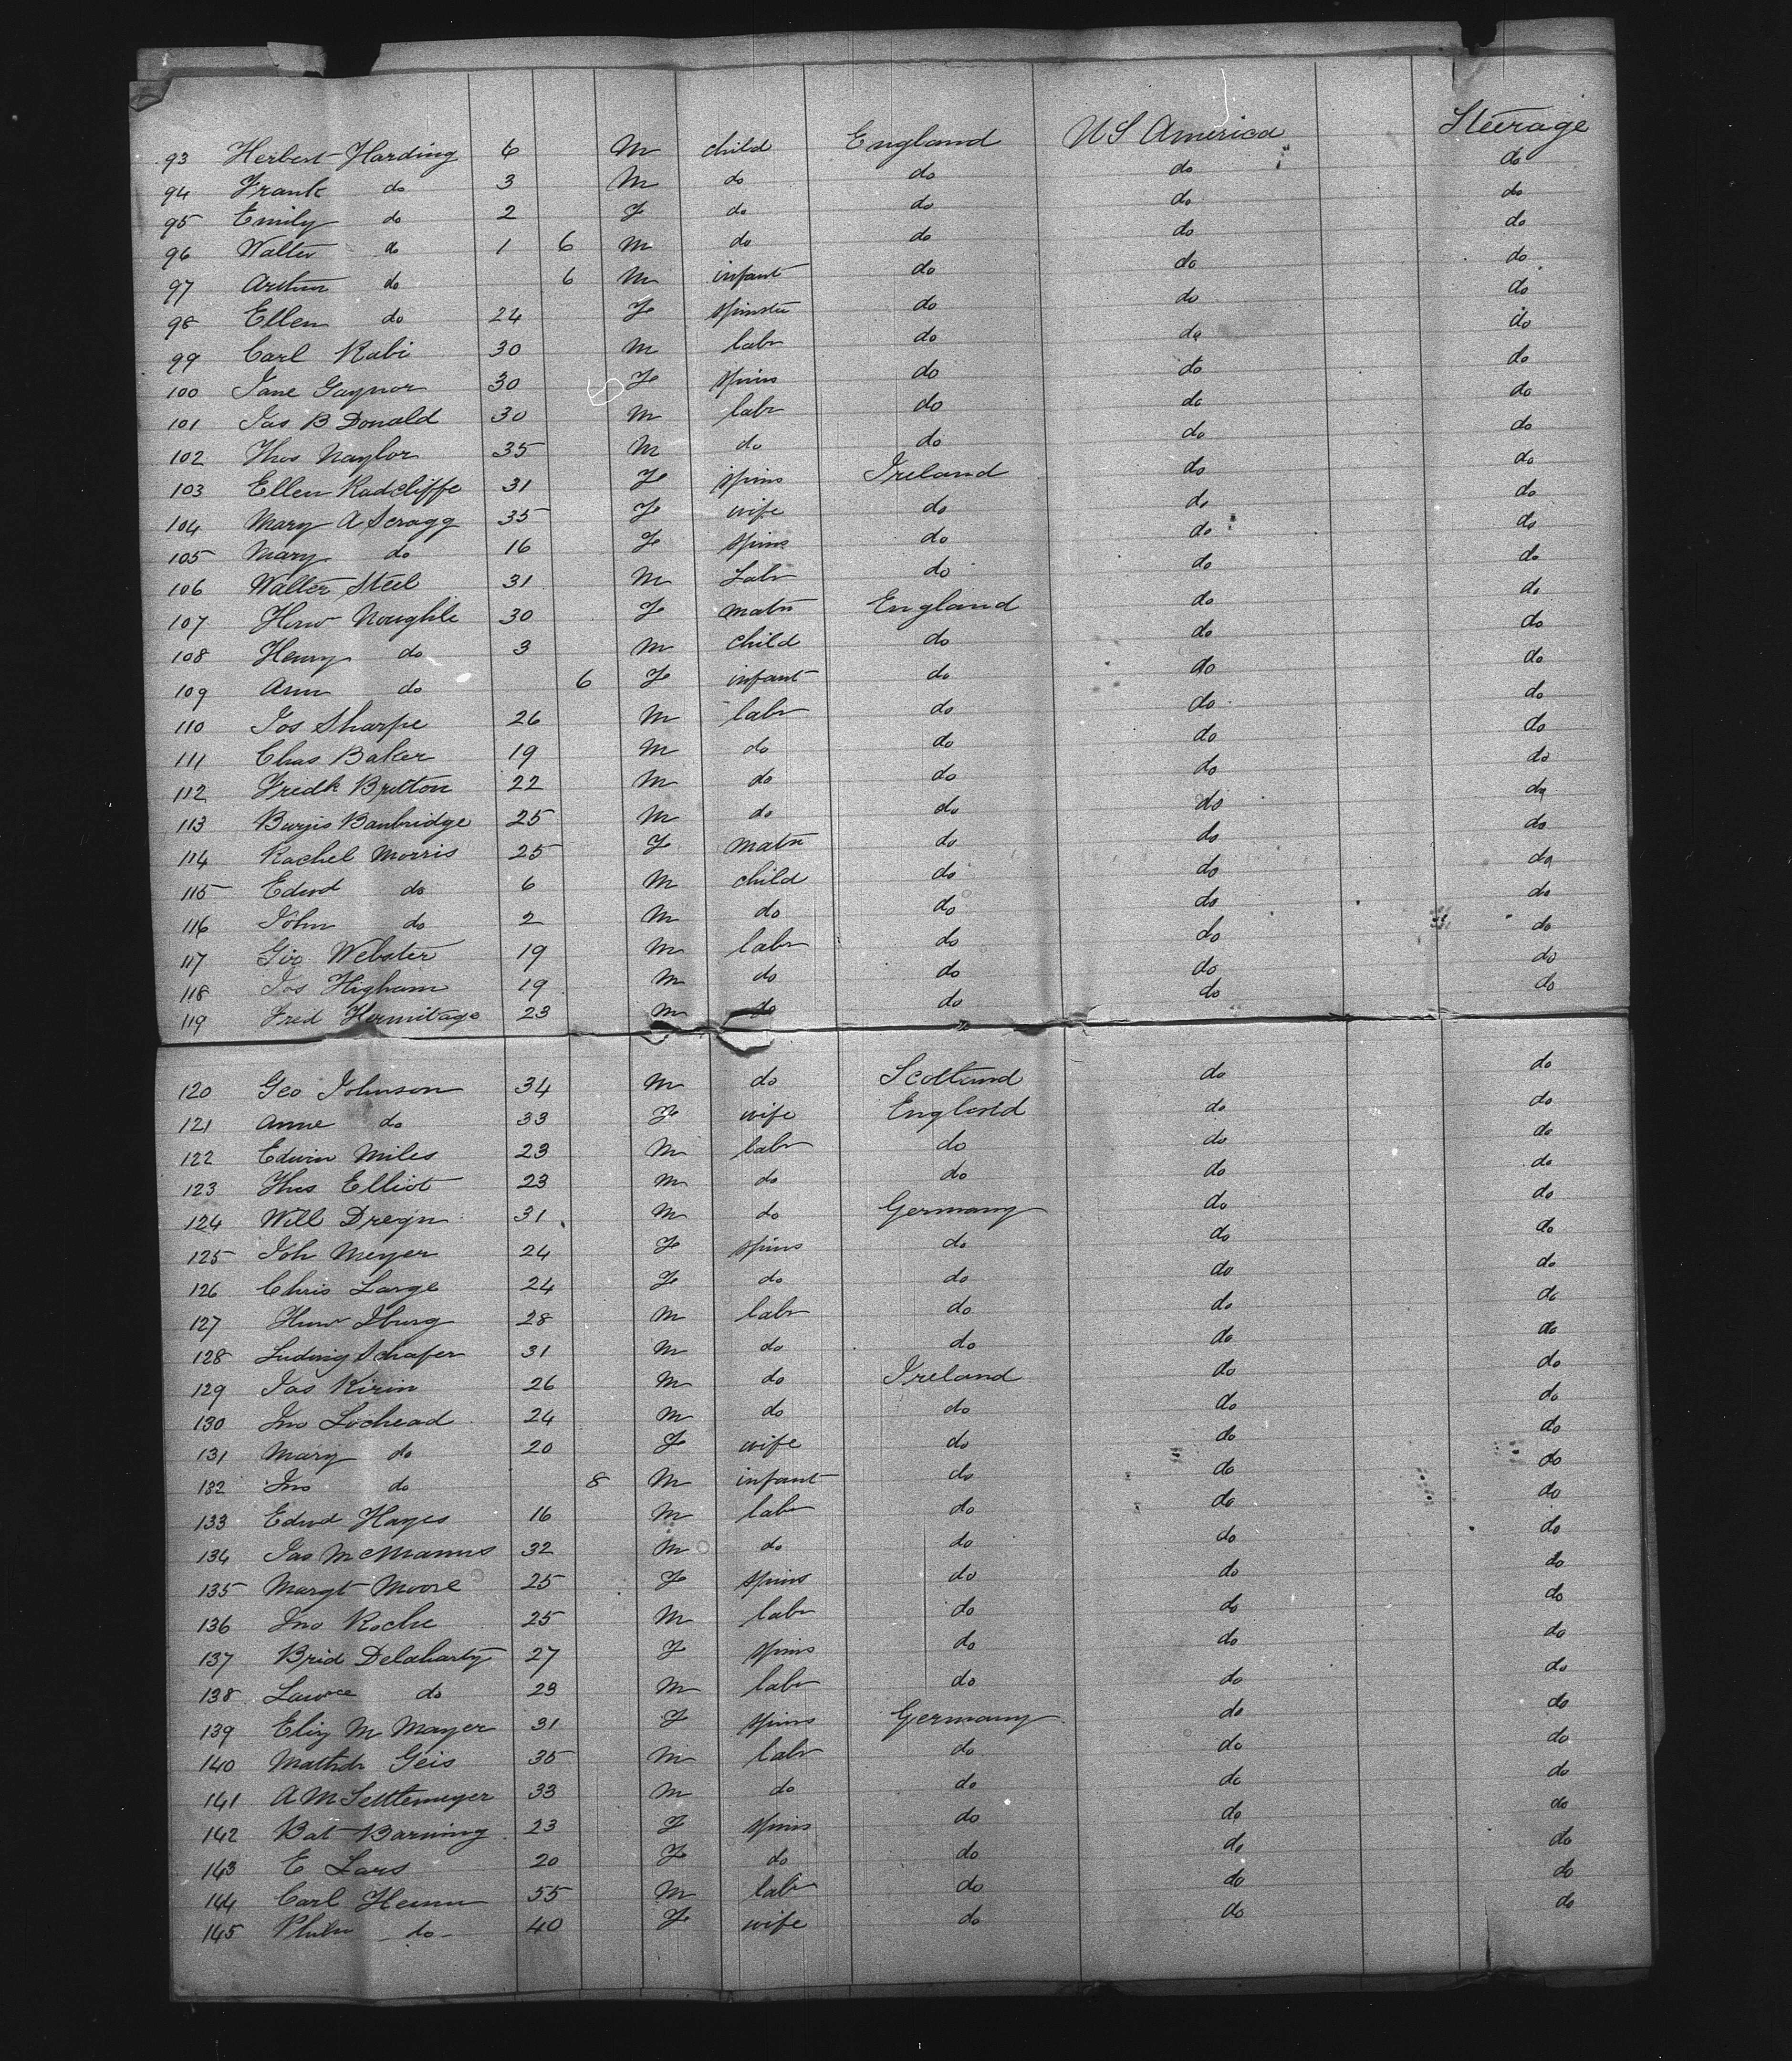 93 Herbert Harding 6 M child England US America Steerage
94 Frank do 3 M do do do do
95 Emily do 2 F do do do do
96 Walter do 1 6 M do do do do
97 Arthur do 6 M infant do do do
98 Ellen do 24 F spinster do do do
99 Carl Rabi 30 M labr do do do
100 Jane Gaynor 30 F spins do do do
101 Jas B Donald 30 M labr do do do
102 Thos Naylor 35 M do do do do
103 Ellen Radcliffe 31 F spins Ireland do do
104 Mary A Scragg 35 F wife do do do
105 Mary do 16 F spins do do do
106 Walter Steel 31 M Labr do do do
107 30 F matn England do do
108 Henry do 3 M child do do do
109 Ann do 6 F infant do do do
110 Jos Sharpe 26 M labr do do do
111 Chas Baker 19 M do do do do
112 Fredk Britton 22 M do do do do
113 Banbridge 25 M do do do do
114 Rachel Morris 25 F matn do do do
115 Edwd do 6 M child do do do
116 John do 2 M do do do do
117 Geo Webster 19 M labr do do do
118 Jos Higham 19 M do do do do
119 Fred Hermitage 23 M do do do do
120 Geo Johnson 34 M do Scotland do do
121 Anne do 33 F wife England do do
122 Edwin Miles 23 M labr do do do
123 Thos Elliot 23 M do do do do
124 Will Dregn 31 M do Germany do do
125 Joh Meyer 24 F spins do do do
126 Chris Large 24 F do do do do
127 Iburg 28 M labr do do do
128 Ludwig Schafer 31 M do do do do
129 Jas Kirin 26 M do Ireland do do
130 Jno Lochead 24 M do do do do
131 Mary do 20 F wife do do do
132 Jno do 8 M infant do do do
133 Edwd Hayes 16 M labr do do do
134 Jas McManus 32 M do do do do
135 Margt Moore 25 F spins do do do
136 Jno Roche 25 M labr do do do
137 Brid Delaharty 27 F spins do do do
138 Lawrce do 23 M labr do do do
139 Eliz M Mayer 31 F spins Germany do do
140 Geis 35 M labr do do do
141 A M Settlemeyer 33 M do do do do
142 Bat Barning 23 F spins do do do
143 E Lars 20 F do do do do
144 Carl 55 M labr do do do
145 do 40 F wife do do do